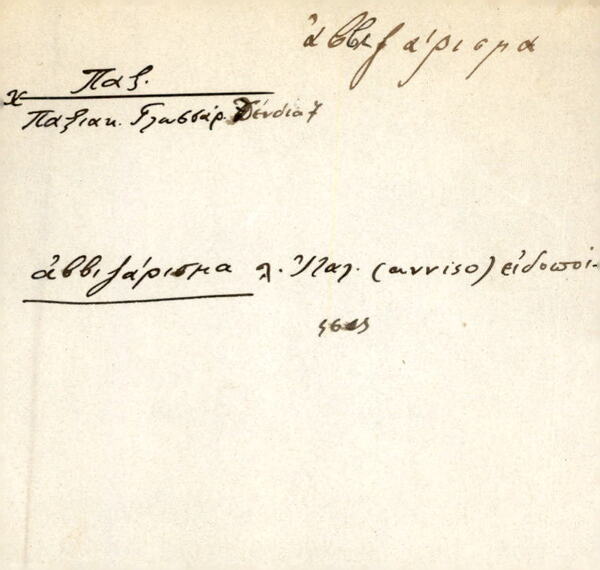 ἀββιζάρισμα
χ Παξ.
Παξιακ. Γλωσσάρ. Δένδια 7
ἀββιζάρισμα λ. Ἰταλ. (avviso) εἰδοποί-
ησις